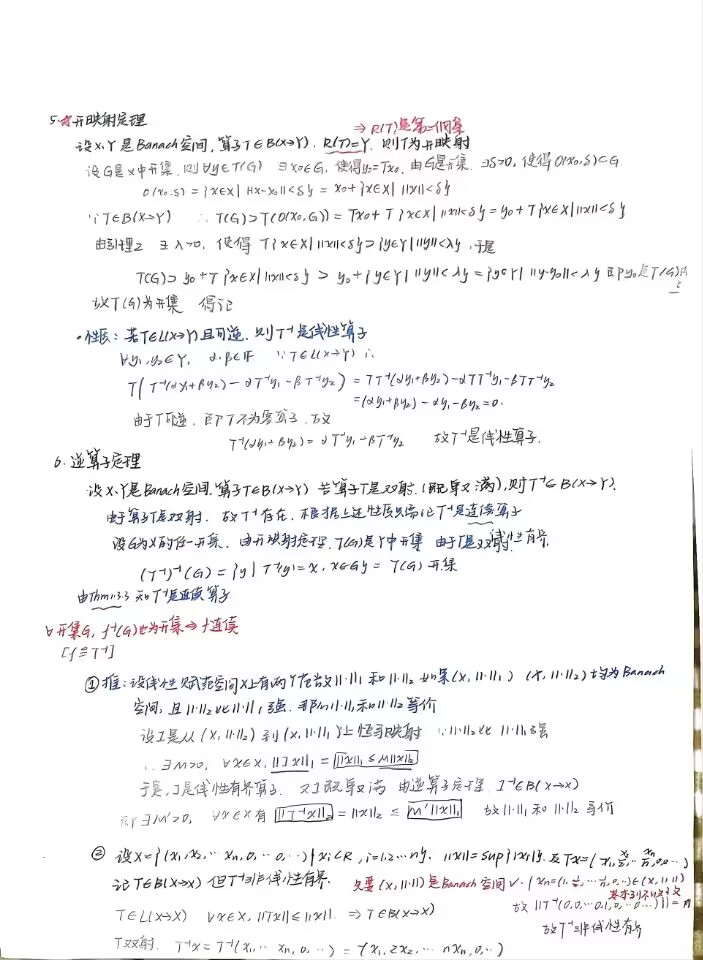 ⇒ R(T)是第二纲集
5. ☆开映射定理
设X、Y是Banach空间, 算子T∈B(X→Y), R(T)=Y, 则T为开映射
设G是X中开集, 则∀y₀∈T(G) ∃x₀∈G, 使得y₀=Tx₀, 由G是开集, ∃δ>0, 使得O(x₀,δ)⊂G
O(x₀,δ)={x∈X| ||x-x₀||<δ}=x₀+{x∈X| ||x||<δ}
∵T∈B(X→Y) ∴T(G)⊃T(O(x₀,G))=Tx₀+T{x∈X| ||x||<δ}=y₀+T{x∈X| ||x||<δ}
由引理2 ∃λ>0, 使得 T{x∈X| ||x||<δ}⊃{y∈Y| ||y||<λ}, 于是
T(G)⊃y₀+T{x∈X| ||x||<δ}⊃y₀+{y∈Y| ||y||<λ}={y∈Y| ||y-y₀||<λ} 即y₀是T(G)内点
故T(G)为开集 得记
•性质: 若T∈L(X→Y)且可逆, 则T⁻¹是线性算子
∀y₁,y₂∈Y, α,β∈F ∵T∈L(X→Y) ∴
T(T⁻¹(αy₁+βy₂)-αT⁻¹y₁-βT⁻¹y₂)=TT⁻¹(αy₁+βy₂)-αTT⁻¹y₁-βTT⁻¹y₂
=(αy₁+βy₂)-αy₁-βy₂=0.
由于T可逆, 即T不为零算子, 故
T⁻¹(αy₁+βy₂)=αT⁻¹y₁-βT⁻¹y₂ 故T⁻¹是线性算子.
6. 逆算子定理
设X、Y是Banach空间, 算子T∈B(X→Y) 若算子T是双射, (既单又满), 则T⁻¹∈B(X→Y).
由于算子T是双射, 故T⁻¹存在, 根据上述性质只需记T⁻¹是连续算子
设G为X的任一开集, 由开映射定理, T(G)是Y中开集 由于T是双射, 线性有界
(T⁻¹)⁻¹(G)={y| T⁻¹y=x, x∈G}=T(G) 开集
由Thm1.3.3 知T⁻¹是连续算子
∀开集G, f⁻¹(G)也为开集⇒f连续
[f≡T⁻¹]
①推: 设线性赋范空间X上有两个范数||·||₁和||·||₂ 如果(X,||·||₁) (X,||·||₂)均为Banach
空间, 且||·||₂比||·||₁强, 那么||·||₁和||·||₂等价
设I是从(X,||·||₂)到(X,||·||₁)上恒等映射 ∵||·||₂比||·||₁强
∴∃M>0, ∀x∈X, ||Ix||₁=||x||₁≤M||x||₂
于是, I是线性有界算子, 又I既单又满 由逆算子定理 I⁻¹∈B(X→X)
∃M'>0, ∀x∈X有||I⁻¹x||₂=||x||₂≤M'||x||₁ 故||·||₁和||·||₂等价
② 设X={(x₁,x₂,…xₙ,0,…0,…)|xᵢ∈R,i=1,2…n}, ||x||=sup|xᵢ|, 及Tx=(x₁,x₂/2,…xₙ/n,0,0…)
记T∈B(X→X) 但T⁻¹非线性有界. 欠要(X,||·||)是Banach空间✓. {xₙ=(1,½,…1/n,0,…)∈(X,||·||)
基本列不收敛
T∈L(X→X) ∀x∈X, ||Tx||≤||x||. ⇒T∈B(X→X) 故||T⁻¹(0,0,…0,1,0,…0…)||=n
故T⁻¹非线性有界
T双射. T⁻¹x=T⁻¹(x₁,…xₙ,0,…)=(x₁,2x₂,…nxₙ,0,…)